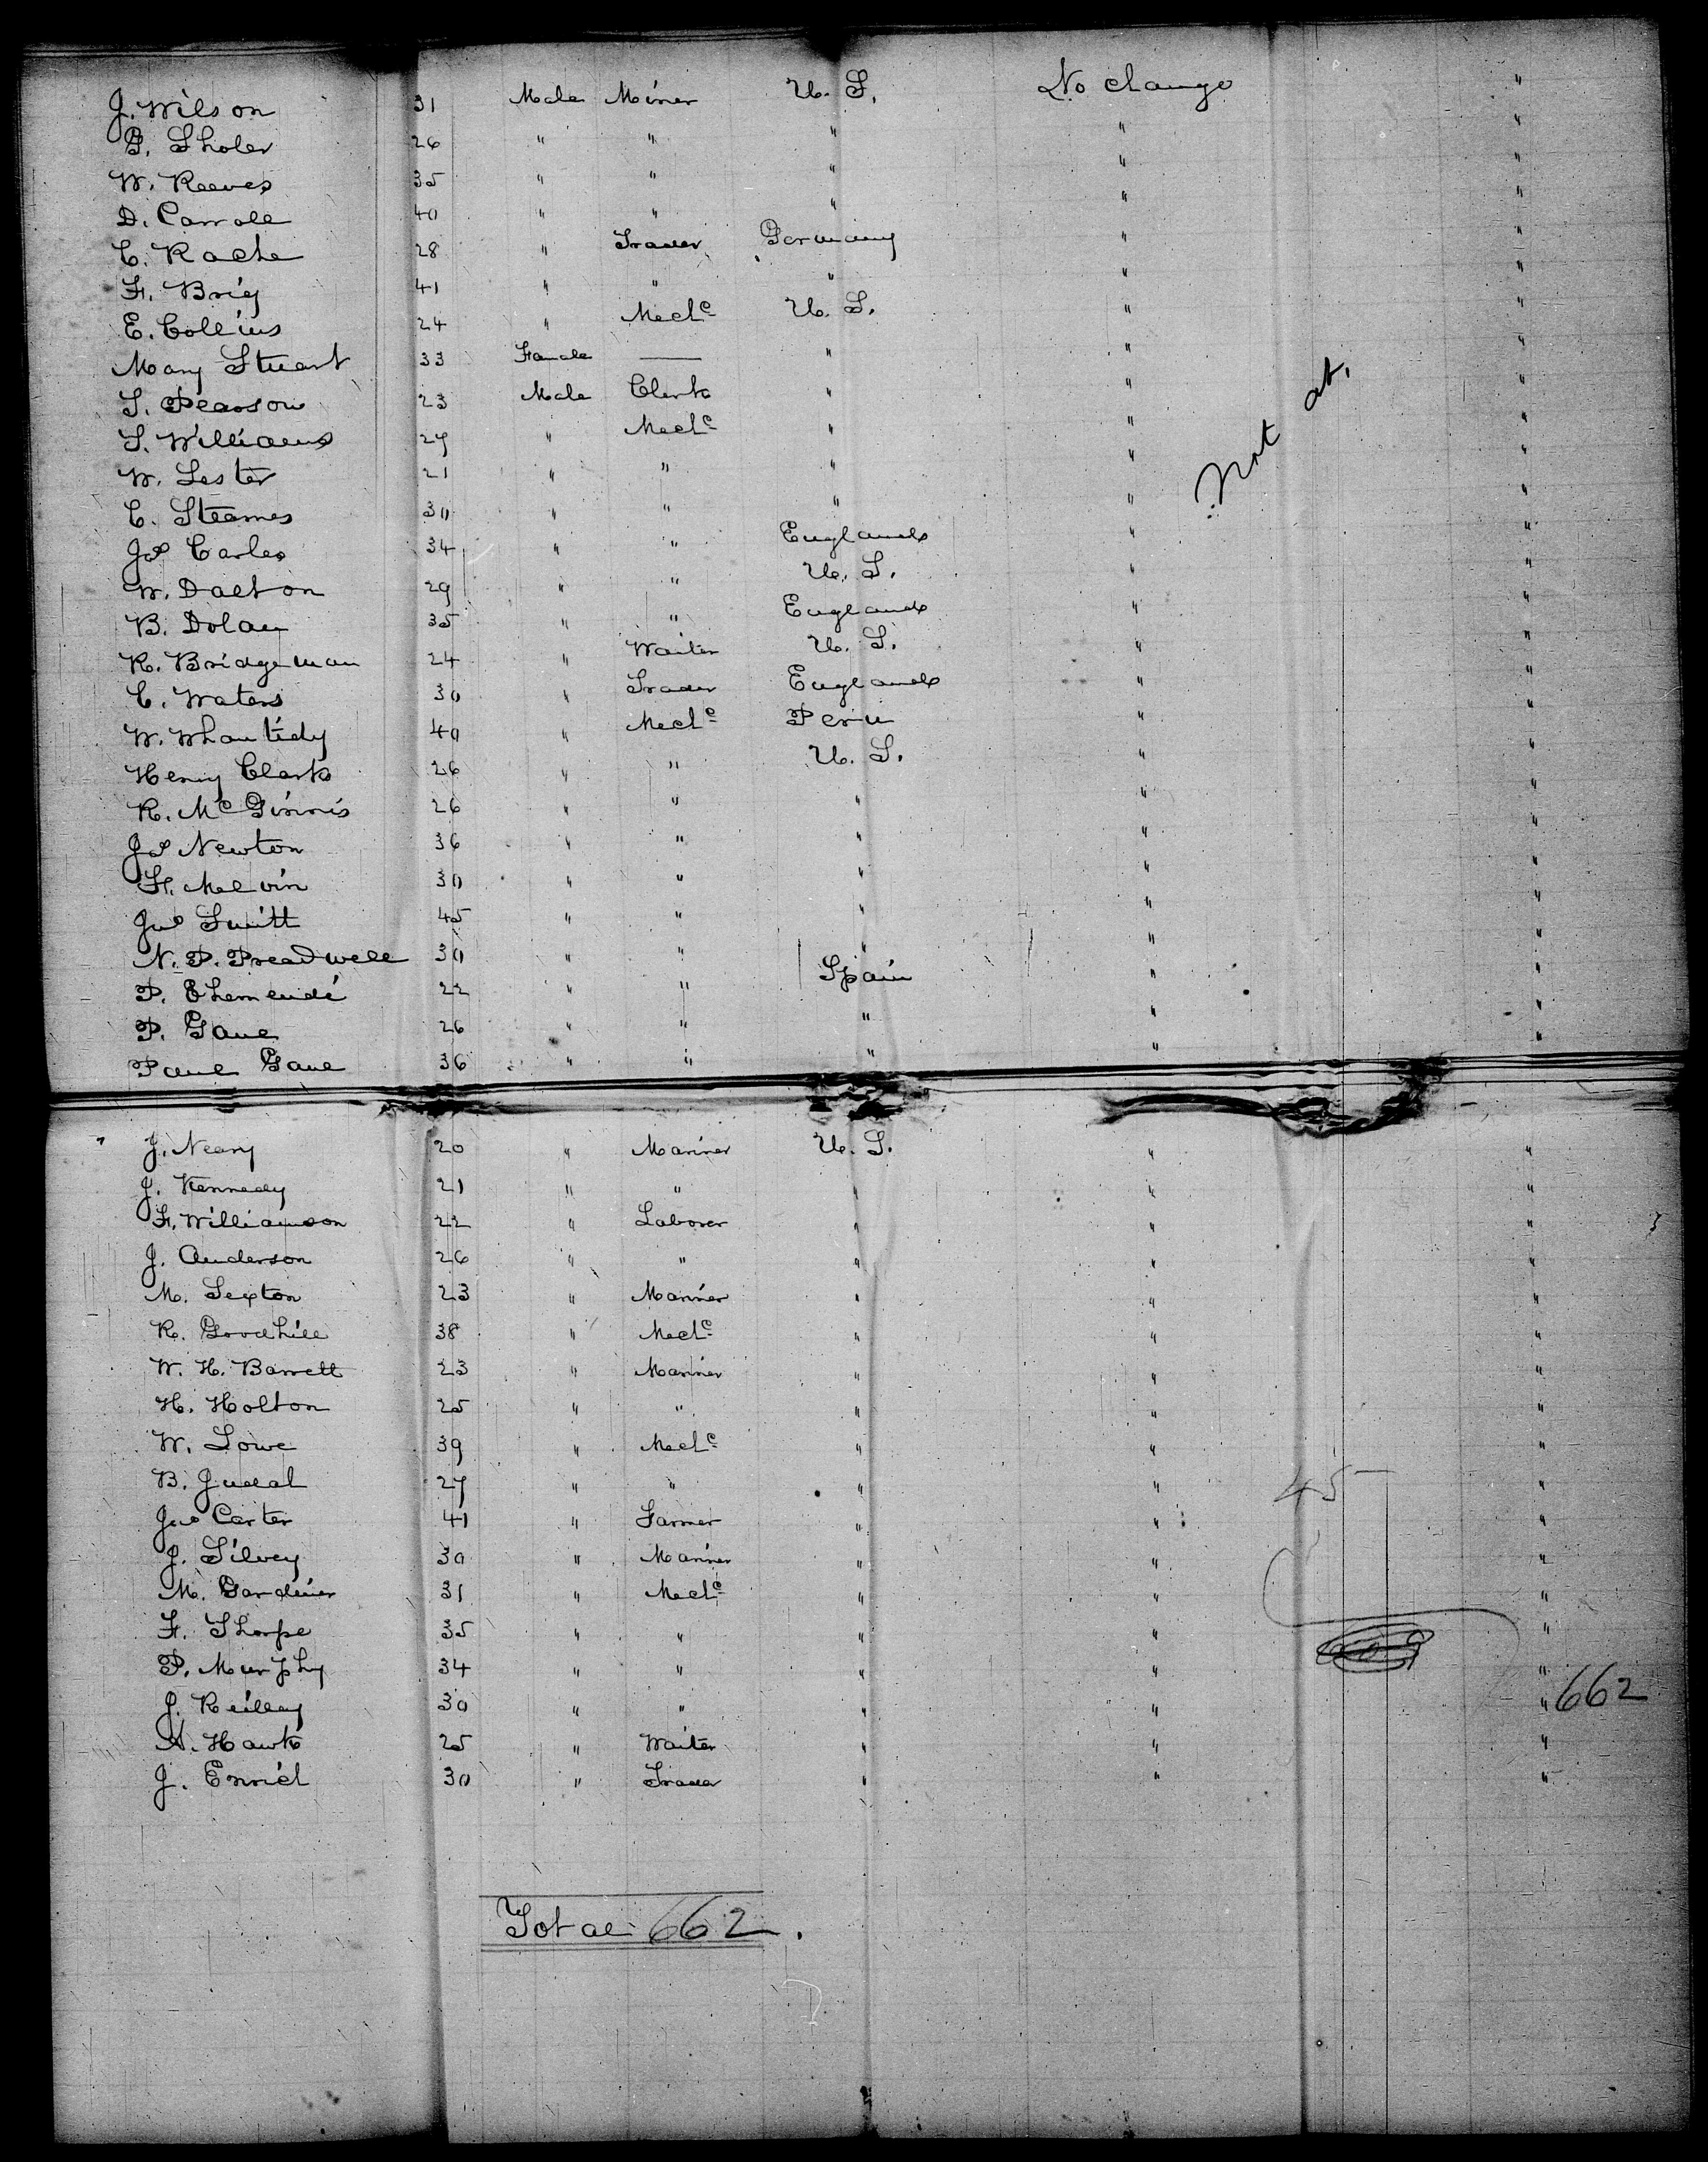 J. Wilson 31 Male Miner U. S. No change "
G. Sholer 26 " " " " "
W. Reeves 35 " " " " "
D. Carroll 40 " " " " "
C. Rache 28 " Trader Germany " "
F. Brig 41 " " " " "
E. Collins 24 " Mechc U. S. " "
Mary Stuart 33 Female — " " "
S. Pearson 23 Male Clerk " " "
S. Williams 27 " Mechc " " "
W. Lester 21 " " " " "
Not at.
C. Stearnes 30 " " " " "
Jos Carles 34 " " England " "
W. Dalton 29 " " U. S. " "
B. Dolan 35 " " England " "
R. Bridgeman 24 " Waiter U. S. " "
C. Waters 30 " Trader England " "
W. Whantidy 40 " Mechc Peru " "
Henry Clark 26 " " U. S. " "
R. McGinnis 26 " " " " "
Jos Newton 36 " " " " "
H. Melvin 30 " " " " "
Jno Smitt 45 " " " " "
N. P. Preadwell 30 " " " " "
P. 22 " " Spain " "
P. Gaue 26 " " " " "
Paul Gaue 36 " " " "
J. Neary 20 " Mariner U. S. " "
J. Kennedy 21 " " " " "
F. Williamson 22 " Laborer " " "
J. Anderson 26 " " " " "
M. Sexton 23 " Mariner " " "
R. Goodhill 38 " Mechc " " "
W. H. Barrett 23 " Mariner " " "
H. Holton 25 " " " " "
W. Lowe 39 " Mechc " " "
B. Judah 27 " " " " 45 "
Jno Carter 41 " Farmer " " "
J. Silvey 30 " Mariner " " "
M. Gardiner 31 " Mechc " " "
F. Thorpe 35 " " " " "
P. Murphy 34 " " " " "
J. Reilley 30 " " " " " 662
A. Hawk 25 " Waiter " " "
J. Enrich 30 " Trader " " "
Total 662.